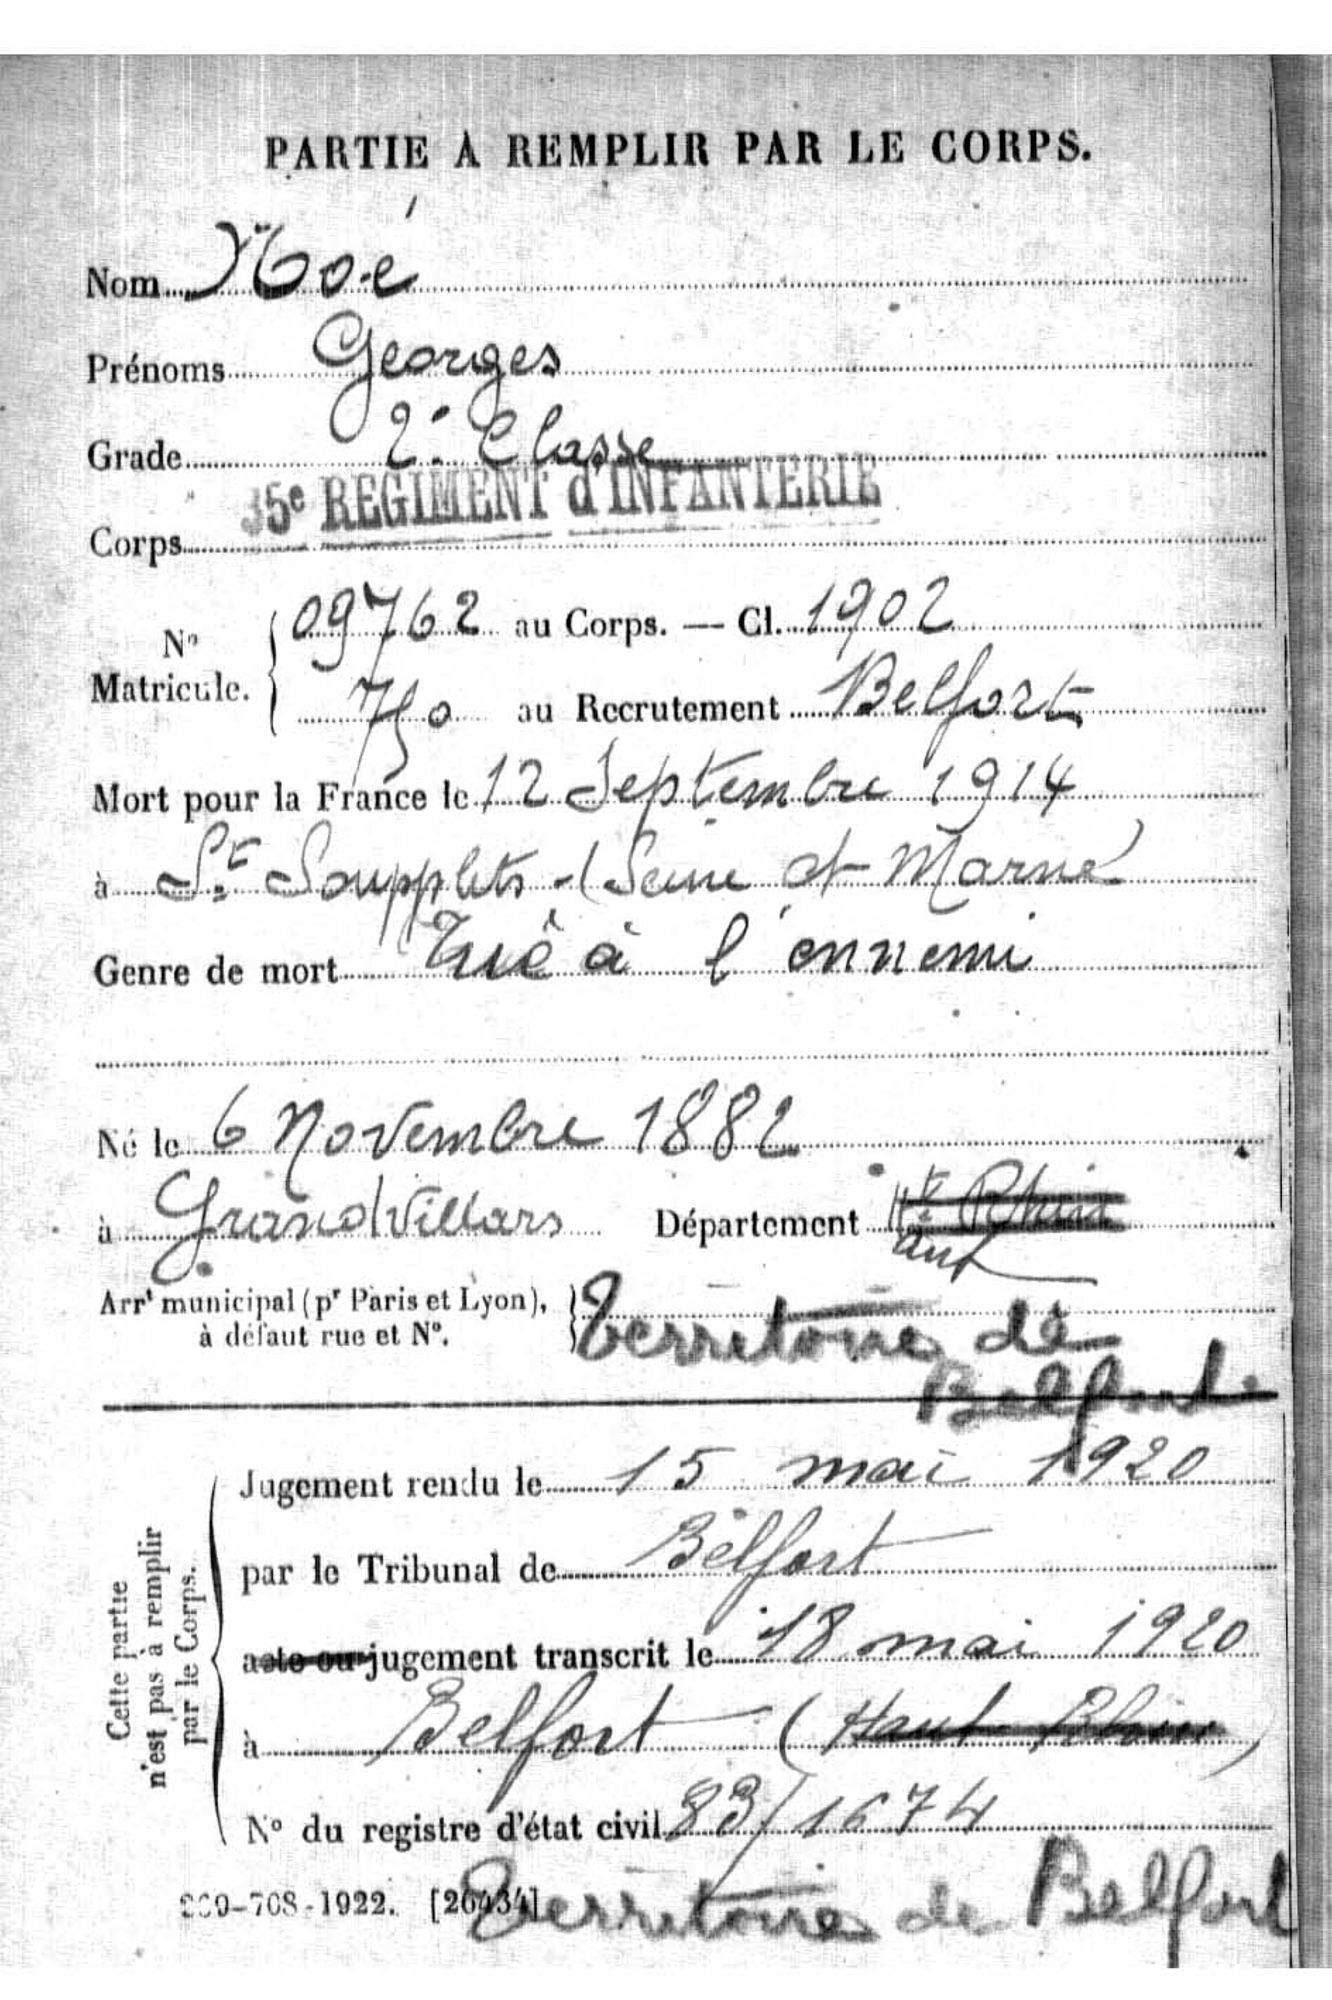 PARTIE À REMPLIR PAR LE CORPS.
Nom Noé
Prénoms Georges
Grade 2e Classe
Corps 35e REGIMENT d'INFANTERIE
No Matricule. { 09762 au Corps. — Cl. 1902
750 au Recrutement Belfort
Mort pour la France le 12 Septembre 1914
à St Soupplets - (Seine et Marne)
Genre de mort Tué à l'ennemi
Né le 6 Novembre 1882
à Grandvillars Département Ht Rhin
Arrt municipal (pr Paris et Lyon), } Territoire de
à défaut rue et No. Belfort
Cette partie n'est pas à remplir par le Corps.
Jugement rendu le 15 mai 1920
par le Tribunal de Belfort
acte ou jugement transcrit le 18 mai 1920
à Belfort (Haut Rhin)
No du registre d'état civil 83/1674
-708-1922. [26434] Territoire de Belfort